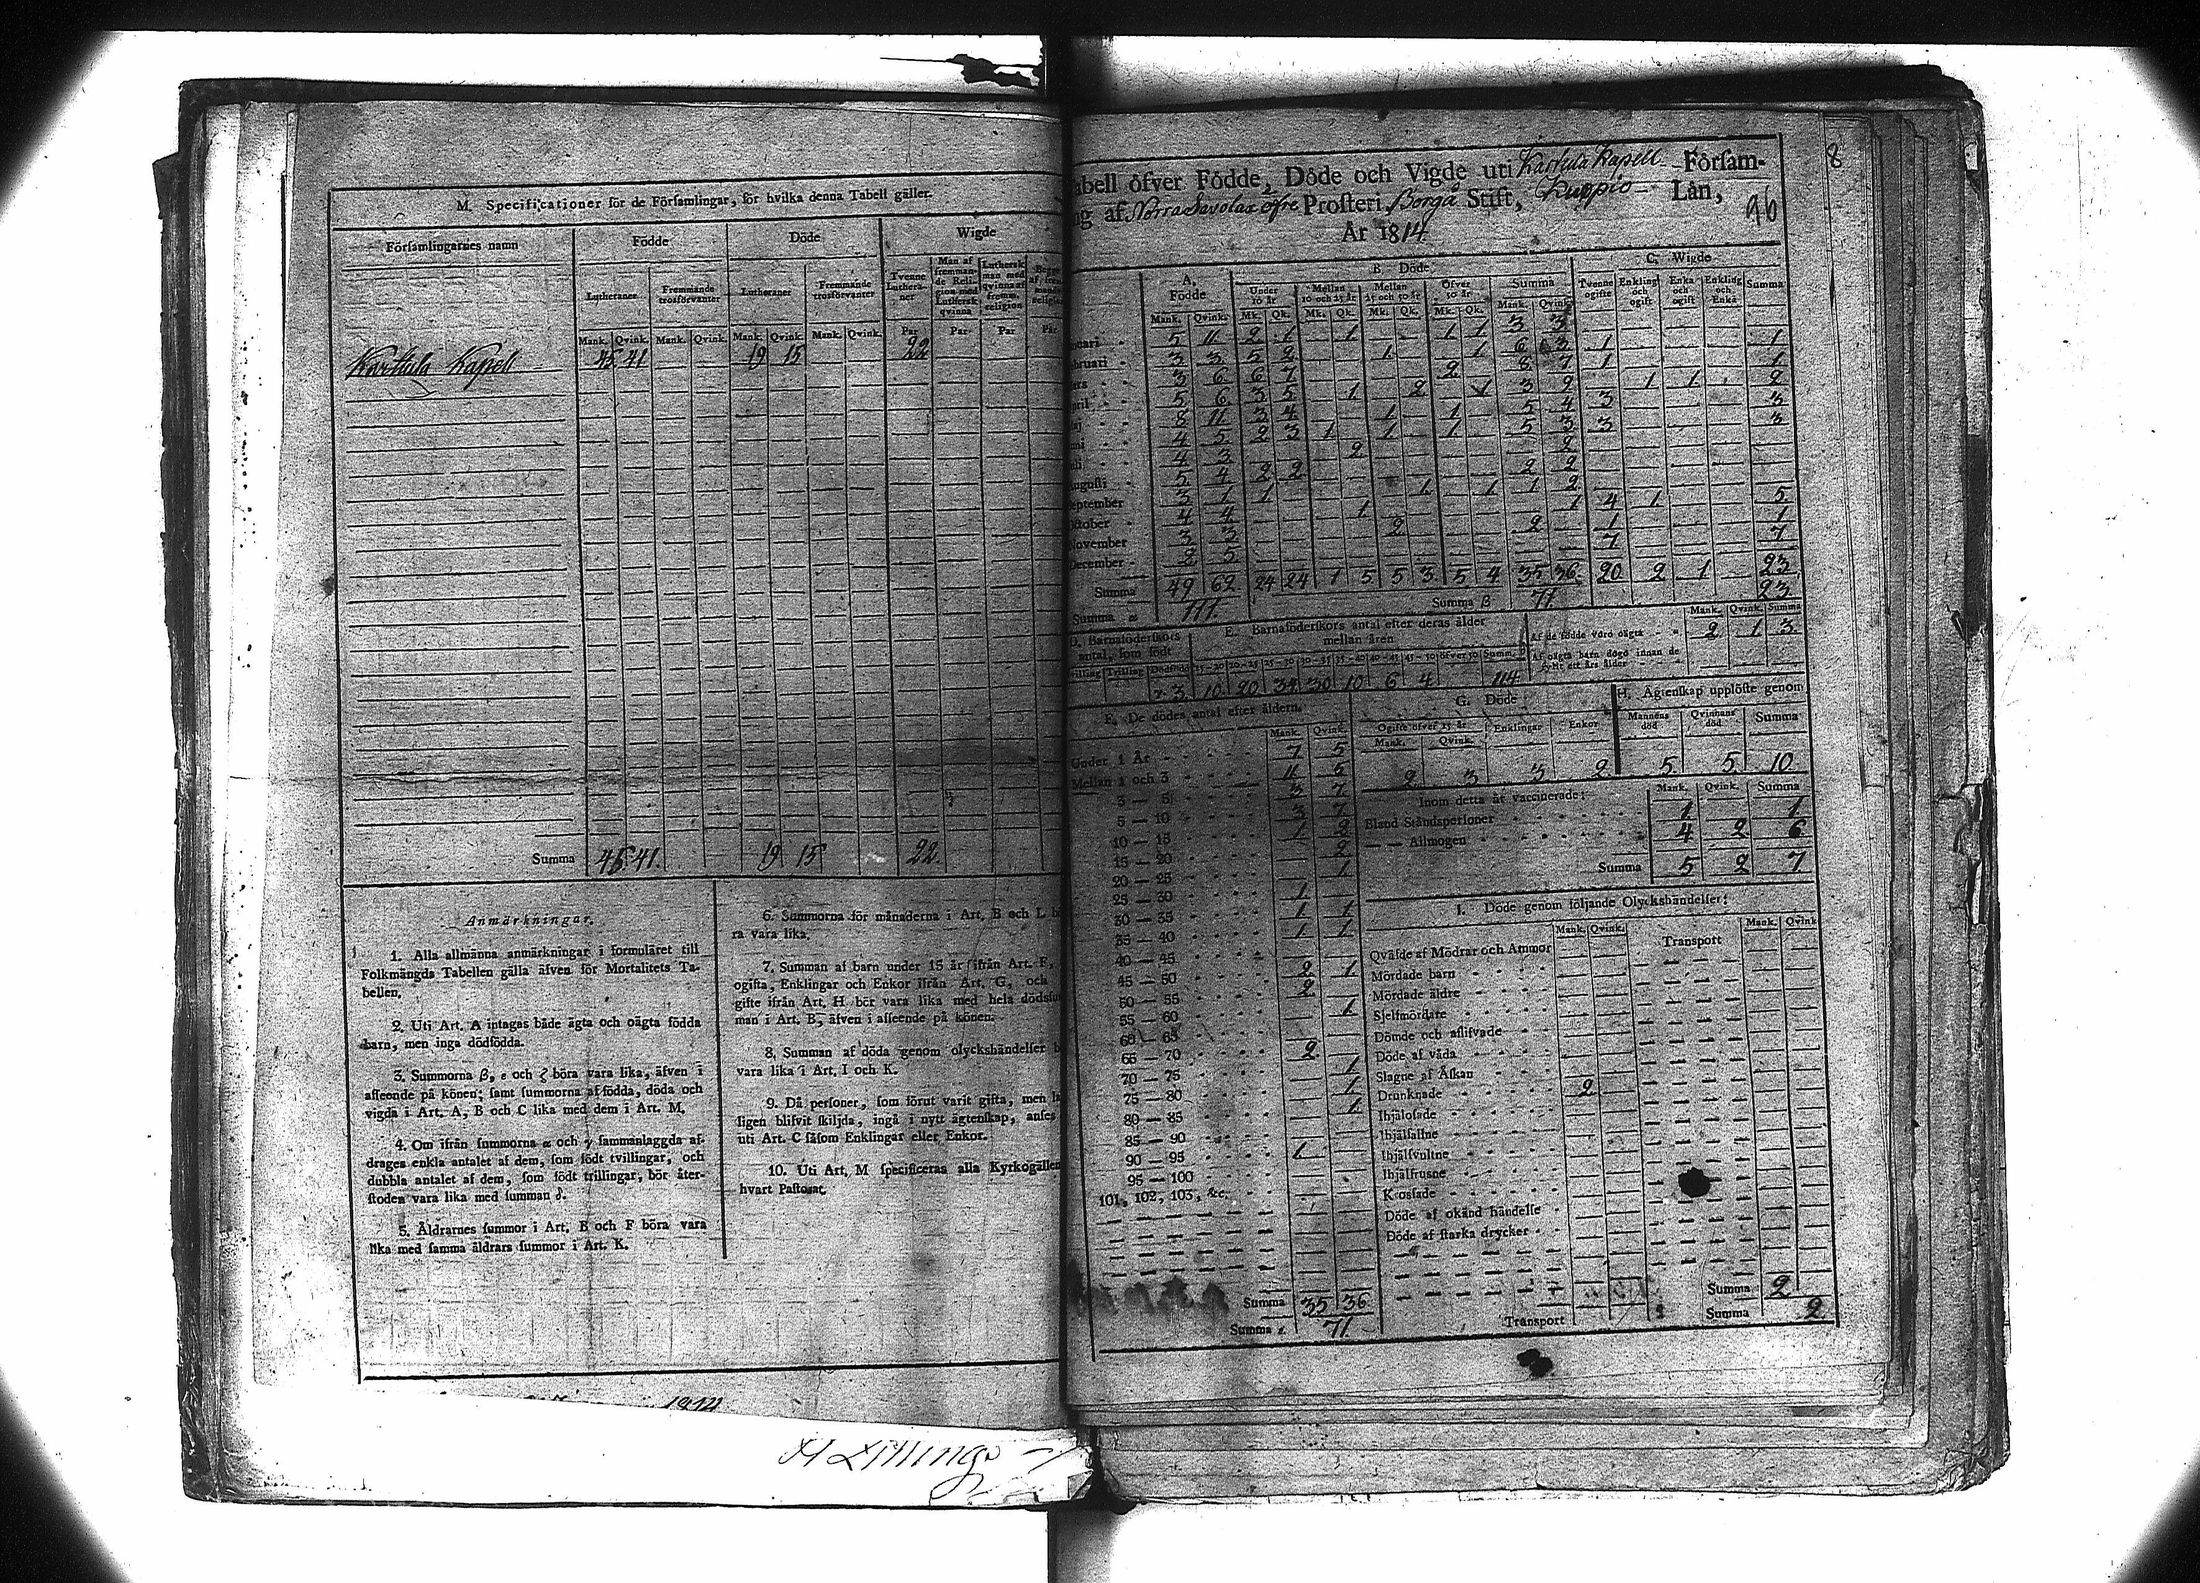 M. Specificationer för de Församlingar, för hvilka denna Tabell gäller.
Församlingarnes namn
Födde
Döde
Wigde
Lutheraner
Fremmande trosförvanter
Lutheraner
Fremmande trosförvanter
Tvenne Lutheraner
Man af fremmande Religion med Luthersk qvinna
Luthersk man med qvinna af fremm. religion
Mank. Qvink. Mank. Qvink. Mank. Qvink. Mank. Qvink. Par Par Par Par
Karttula Kapell 45 41 19 15 22
Summa 45 41. 19 15 22.
Anmärkningar.
1. Alla allmänna anmärkningar i formuläret till
Folkmängds Tabellen gälla äfven för Mortalitets Ta-
bellen.
2. Uti Art. A intagas både ägta och oägta födda
barn, men inga dödfödda.
3. Summorna β, ε och ζ böra vara lika, äfven i
afseende på könen; samt summorna af födda, döda och
vigda i Art. A, B och C lika med dem i Art. M.
4. Om ifrån summorna α och γ sammanlaggda af-
drages enkla antalet af dem, som födt tvillingar, och
dubbla antalet af dem, som födt trillingar, bör åter-
stoden vara lika med summan δ.
5. Åldrarnes summor i Art. B och F böra vara
lika med samma åldrars summor i Art. K.
6. Summorna för månaderna i Art. B och L
ra vara lika.
7. Summan af barn under 15 år ifrån Art. F,
ogifta, Enklingar och Enkor ifrån Art. G, och
gifte ifrån Art. H bör vara lika med hela
man i Art. B, äfven i afseende på könen.
8. Summan af döda genom olyckshändelser
vara lika i Art. I och K.
9. Då personer, som förut varit gifta, men
ligen blifvit skiljda, ingå i nytt ägtenskap, anses
uti Art. C såsom Enklingar eller Enkor.
10. Uti Art. M specificeras alla Kyrkogällen
hvart Pastorat.
1814
8
96
abell öfver Födde, Döde och Vigde uti Karttula Kapell Försam-
ng af Norra Savolax öfre Prosteri Borgå Stift, Kuopio Län,
År 1814
A. Födde
B. Döde
C. Wigde
Under 10 år
Mellan 10 och 25 år
Mellan 25 och 50 år
Öfver 50 år
Summa
Tvenne ogifte
Enkling och ogift
Enka och ogift
Enkling och Enka
Summa
Mank. Qvink. Mk. Qk. Mk. Qk. Mk. Qk. Mk. Qk. Mank. Qvink.
nuari 5 11 2 1 1 1 1 3 3
bruari 3 3 5 2 1 1 6 3 1 1
ars 3 6 6 7 2 8 7 1 1
pril 5 6 3 5 1 2 1 3 2 1 1 2
aj 8 11 3 4 1 1 5 4 3 3
uni 4 5 2 3 1 1 1 5 3 3 3
uli 4 3 2 2
ugusti 5 4 2 2 2 2
eptember 3 1 1 1 1 1 2
ctober 4 4 1 1 4 1 5
November 3 3 2 2 1 1
December 2 5 7 7
Summa 49 62 24 24 1 5 5 3 5 4 35 36 20 2 1 23
Summa α 111. Summa β 71. 23
D. Barnaföderskors antal, som födt
E. Barnaföderskors antal efter deras ålder mellan åren
Mank. Qvink. Summa
Af de födde voro oägta 2 1 3
Af oägta barn dogo innan de fyllt ett års ålder
Tvilling Trilling Dödfödd 15-20 20-25 25-30 30-35 35-40 40-45 45-50 öfver 50 Summ.
γ. 3. 10 20 34 30 10 6 4 114
F. De dödes antal efter åldern.
Mank. Qvink.
Under 1 År 7 5
Mellan 1 och 3 11 5
3 — 5 3 7
5 — 10 3 7
10 — 15 1 2
15 — 20 2
20 — 25 1
25 — 30 1
30 — 35 1 1
35 — 40 1 1
40 — 45
45 — 50 2 1
50 — 55 2
55 — 60 1
60 — 65
65 — 70 2
70 — 75 1
75 — 80 1
80 — 85 1
85 — 90
90 — 95 1
95 — 100
101, 102, 103, &c.
Summa 35 36
Summa ε. 71
G. Döde
Ogifte öfver 15 år
Enklingar
Enkor
Mank. Qvink.
2 3 3 2
H. Ägtenskap upplöste genom
Mannens död
Qvinnans död
Summa
5 5 10
Inom detta år vaccinerade: Mank. Qvink. Summa
Bland Ståndspersoner 1 1
— — Allmogen 4 2 6
Summa 5 2 7
I. Döde genom följande Olyckshändelser:
Mank. Qvink. Transport Mank. Qvink
Qväfde af Mödrar och Ammor
Mördade barn
Mördade äldre
Sjelfmördare
Dömde och aflifvade
Döde af våda
Slagne af Åskan
Drunknade 2
Ihjälosade
Ihjälfallne
Ihjälsvultne
Ihjälfrusne
Krossade
Döde af okänd händelse
Döde af starka drycker
Summa 2
Transport Summa 2